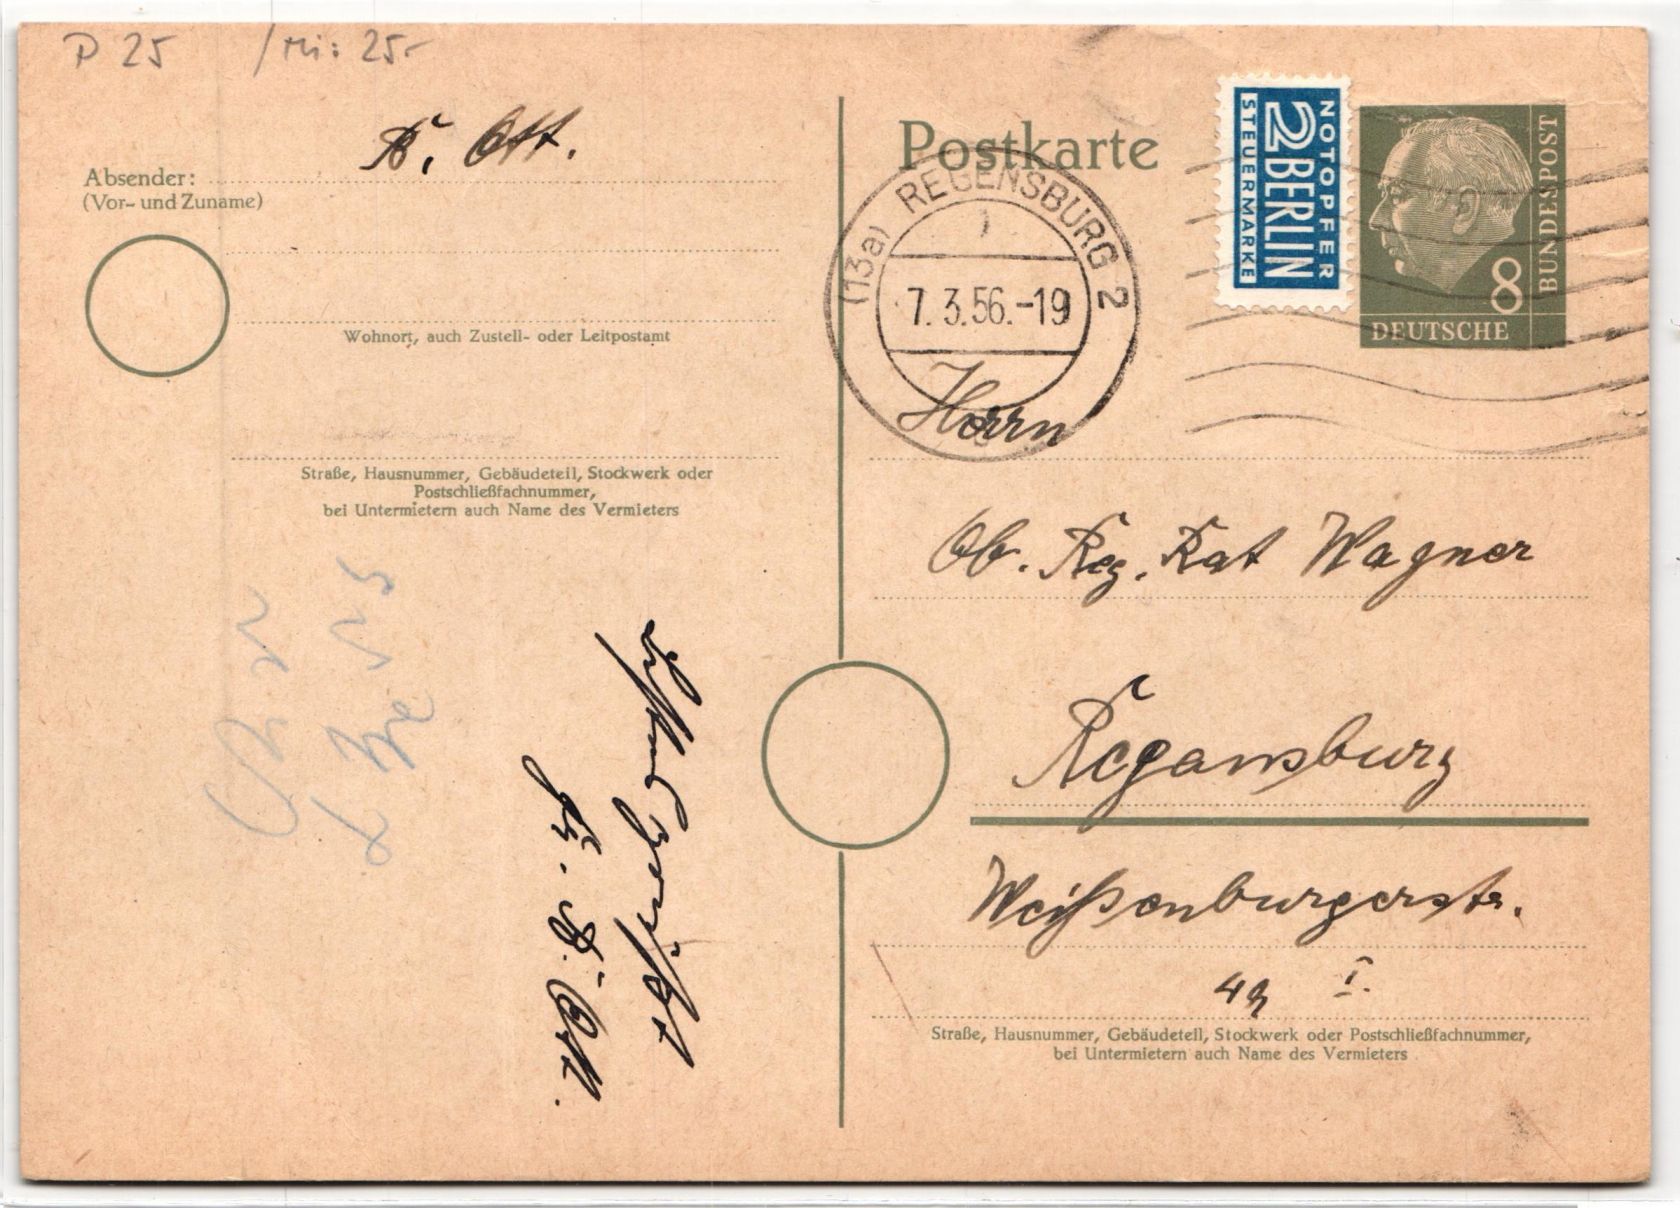 P 25 / Mi: 25.-
B. Ott.
Absender:
(Vor- und Zuname)
Wohnort, auch Zustell- oder Leitpostamt
Straße, Hausnummer, Gebäudeteil, Stockwerk oder
Postschließfachnummer,
bei Untermietern auch Name des Vermieters
Postkarte
(13a) REGENSBURG 2
7.3.56.-19
NOTOPFER
2 BERLIN
STEUERMARKE
8
DEUTSCHE
BUNDESPOST
Herrn
Ob. Reg. Rat Wagner
Regensburg
Weißenburgerstr.
I.
Straße, Hausnummer, Gebäudeteil, Stockwerk oder Postschließfachnummer,
bei Untermietern auch Name des Vermieters
B. Ott.